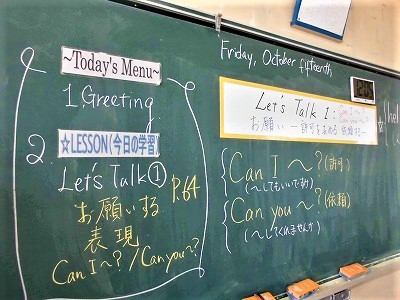 ~Today's Menu~
1. Greeting
2. ☆LESSON(今日の学習)
Let's Talk①
P.64
お願いする
表現
Can I~?/Can you~?
Friday, October fifteenth
Let's Talk 1:
お願い ー許可を求める・依頼するー
Can I ~?(許可)
(~してもいいですか)
Can you ~?(依頼)
(~してくれませんか)